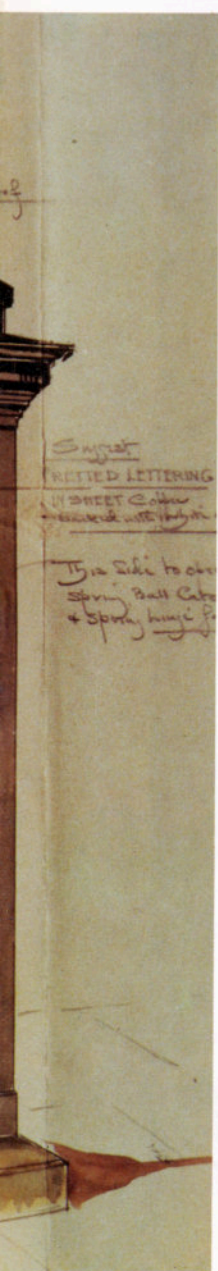 of
Suggest
FRETTED LETTERING
IN SHEET Copper
backed with
This Side to open
Spring Ball Catc
& Spring hinge f